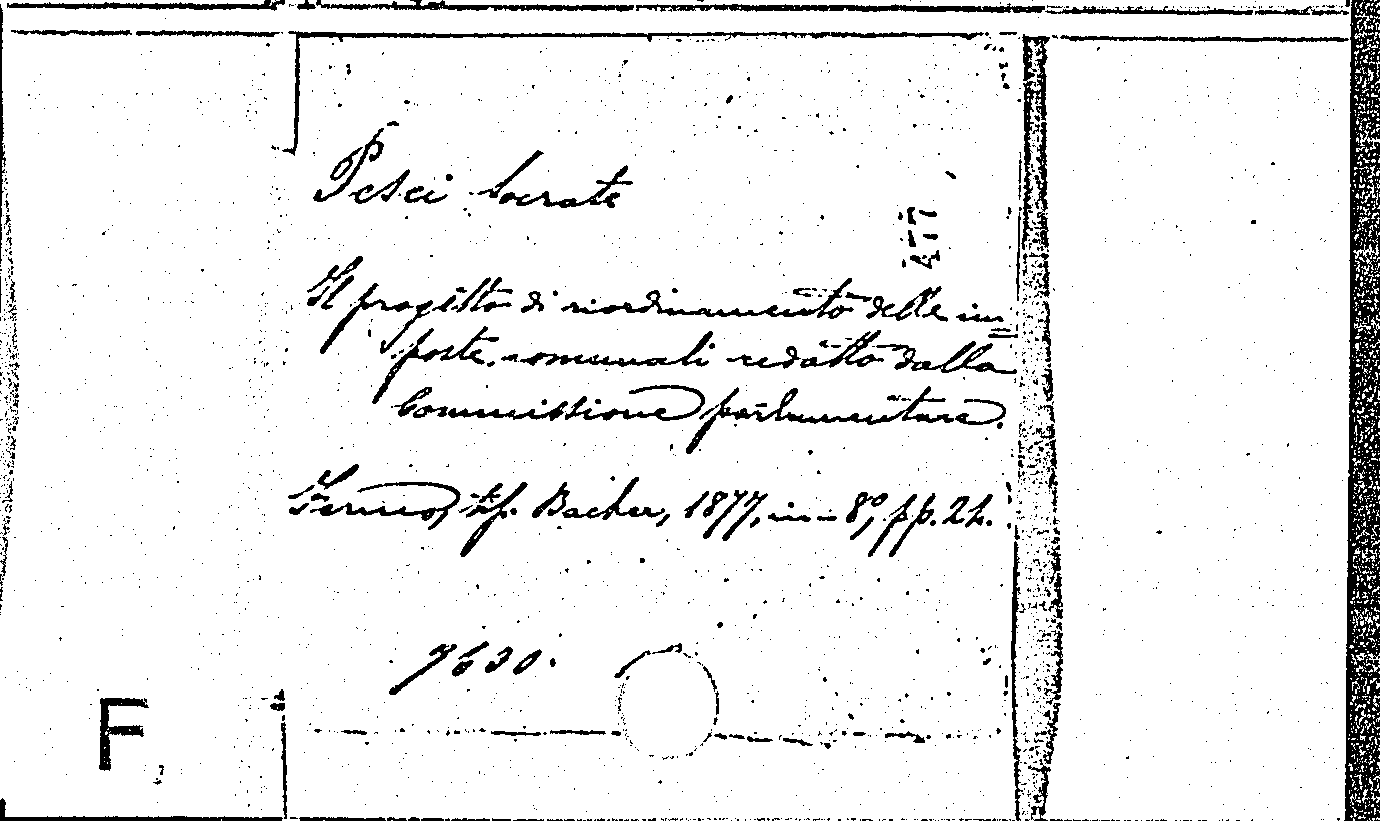 Pesci Socrate
477
Il progetto di riordinamento delle im=
poste comunali redatto dalla
Commissione parlamentare.
Fermo, tip. Bacher, 1877, in-8°, pp. 24.
7630.
F